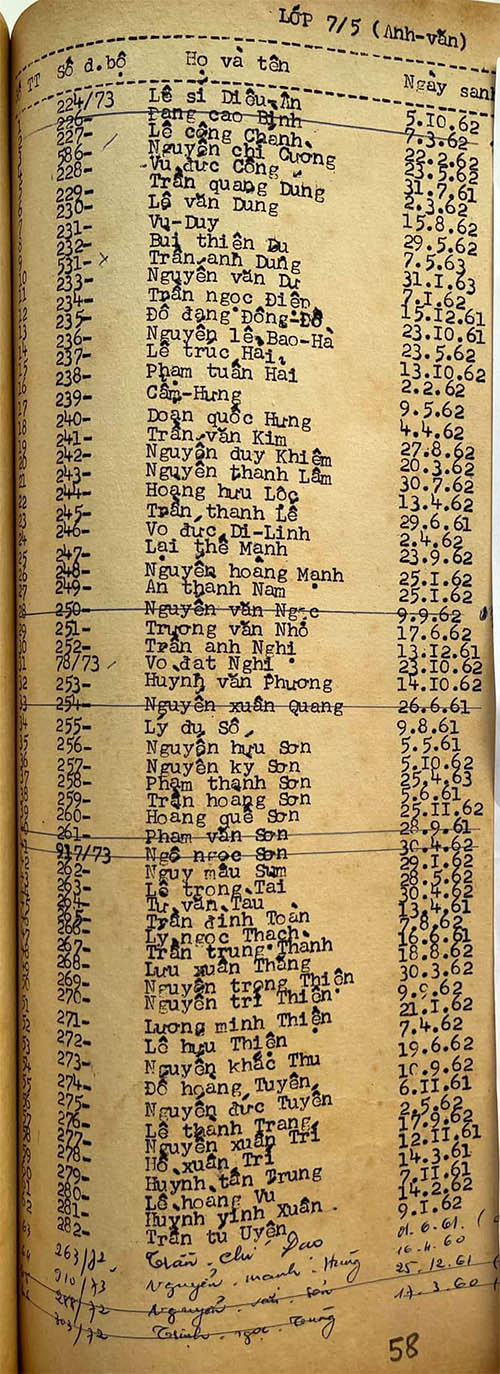 LỚP 7/5 (Anh-văn)
TT Số d.bộ Họ và tên Ngày sanh
224/73 Lê si Diệu-Ân 5.10.62
226- Đang cao Định 7.3.62
227- Lê công Chanh 22.2.62
586- Nguyễn chi Cương 23.5.62
228- Vu đức Công 31.7.61
229- Trần quang Dung 2.3.62
230- Lê văn Dung 15.8.62
231- Vu-Duy 29.5.62
232- Bui thiên Du 7.5.63
531- Trần anh Dung 31.I.63
233- Nguyễn văn Dư 7.I.62
234- Trần ngọc Điệp 15.12.61
235- Đỗ đang Đông-Đô 23.10.61
236- Nguyễn lê Bao-Ha 23.5.62
237- Lê truc Hai 13.10.62
238- Phạm tuấn Hai 2.2.62
239- Cẩm-Hưng 9.5.62
240- Doạn quốc Hưng 4.4.62
241- Trần văn Kim 27.8.62
242- Nguyễn duy Khiêm 20.3.62
243- Nguyễn thanh Lâm 30.7.62
244- Hoang hưu Lộc 13.4.62
245- Trần thanh Lê 29.6.61
246- Vo đức Di-Linh 2.4.62
247- Lại thế Mạnh 23.9.62
248- Nguyễn hoàng Mạnh 25.I.62
249- An thanh Nam 25.I.62
250- Nguyễn văn Ngọc 9.9.62
251- Trương văn Nhỏ 17.6.62
252- Trần anh Nghi 13.12.61
78/73 Vo đạt Nghi 23.10.62
253- Huynh văn Phương 14.10.62
254- Nguyễn xuân Quang 26.6.61
255- Lý du Số 9.8.61
256- Nguyễn hưu Sơn 5.5.61
257- Nguyễn ky Sơn 5.10.62
258- Phạm thanh Sơn 25.4.63
259- Trần hoang Sơn 5.6.61
260- Hoang quế Sơn 25.II.62
261- Phạm văn Sơn 28.9.61
917/73 Ngô ngọc Sơn 30.4.62
262- Nguy mậu Sum 29.I.62
263- Lê trọng Tai 28.5.62
264- Tư văn Tau 30.4.62
265- Trần đinh Toan 13.4.61
266- Ly ngọc Thạch 7.8.62
267- Trần trung Thanh 16.6.61
268- Lưu xuân Thăng 18.8.62
269- Nguyễn trọng Thiện 30.3.62
270- Nguyễn tri Thiện 9.9.62
271- Lương minh Thiện 21.I.62
272- Lê hưu Thiện 7.4.62
273- Nguyễn khắc Thu 19.6.62
274- Đỗ hoang Tuyển 10.9.62
275- Nguyễn đức Tuyên 6.II.61
276- Lê thanh Trang 2.5.62
277- Nguyễn xuân Tri 17.9.62
278- Hồ xuân Tri 12.II.61
279- Huynh tấn Trung 14.3.61
280- Lê hoang Vu 7.II.61
281- Huynh yinh Xuân 14.2.62
282- Trần tu Uyên 9.I.62
263/72 Trần chí Đao 01.6.61
910/73 Nguyễn mạnh Hùng 16.4.60
288/72 Nguyễn văn Sơn 25.12.61
303/72 Trịnh ngọc Tùng 17.3.60
58